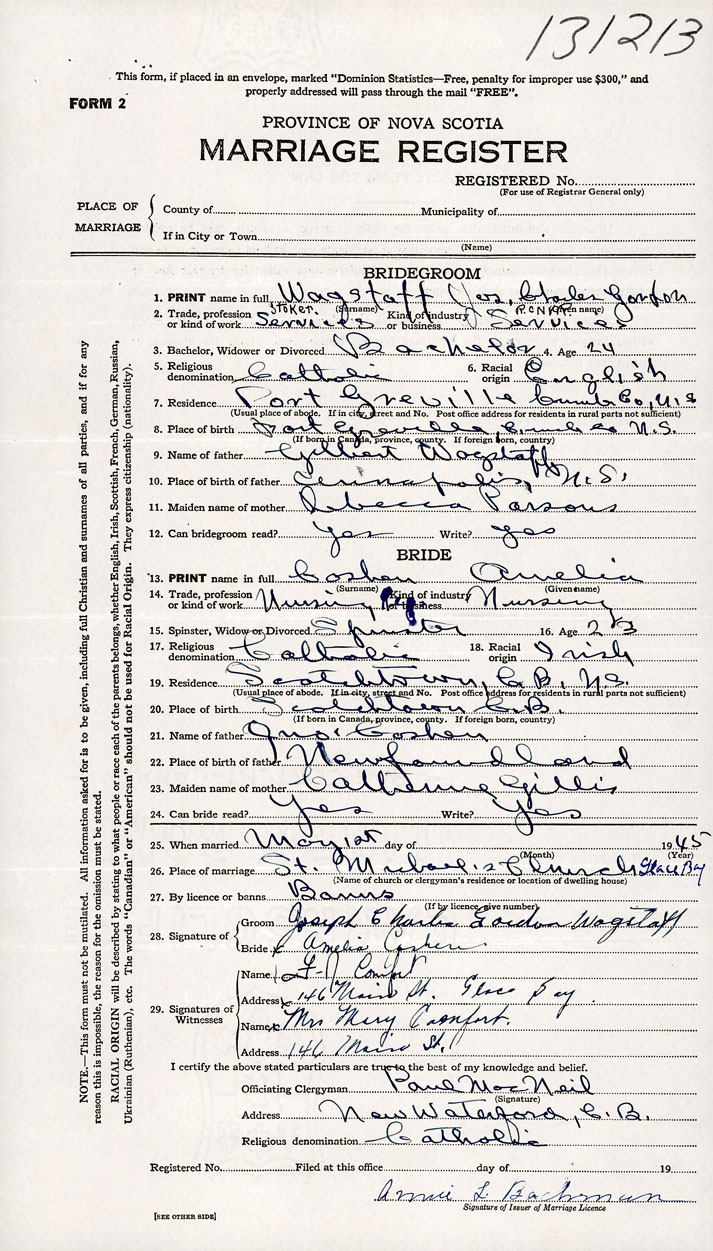 131213
This form, if placed in an envelope, marked "Dominion Statistics—Free, penalty for improper use $300," and
properly addressed will pass through the mail "FREE".
FORM 2
PROVINCE OF NOVA SCOTIA
MARRIAGE REGISTER
REGISTERED No.
(For use of Registrar General only)
PLACE OF MARRIAGE
County of Municipality of
If in City or Town
(Name)
BRIDEGROOM
1. PRINT name in full Wagstaff Jos. Charles Gordon
(Surname) (Given name)
2. Trade, profession or kind of work Stoker Services Kind of industry or business R.C.N.V.R. Services
3. Bachelor, Widower or Divorced Bachelor 4. Age 24
5. Religious denomination Catholic 6. Racial origin English
7. Residence Port Greville Cumb Co, N.S
(Usual place of abode. If in city, street and No. Post office address for residents in rural parts not sufficient)
8. Place of birth Port Greville Cumb Co N.S.
(If born in Canada, province, county. If foreign born, country)
9. Name of father Gilbert Wagstaff
10. Place of birth of father Annapolis, N.S.
11. Maiden name of mother Rebecca Parsons
12. Can bridegroom read? Yes Write? Yes
BRIDE
13. PRINT name in full Coshen Amelia
(Surname) (Given name)
14. Trade, profession or kind of work Nursing Kind of industry or business Nursing
15. Spinster, Widow or Divorced Spinster 16. Age 23
17. Religious denomination Catholic 18. Racial origin Irish
19. Residence Scotchtown, C.B. N.S.
(Usual place of abode. If in city, street and No. Post office address for residents in rural parts not sufficient)
20. Place of birth Scotchtown C.B.
(If born in Canada, province, county. If foreign born, country)
21. Name of father Jno. Coshen
22. Place of birth of father Newfoundland
23. Maiden name of mother Catherine Gillis
24. Can bride read? Yes Write? Yes
25. When married May 1st day of 1945
(Month) (Year)
26. Place of marriage St. Michael's Church Glace Bay
(Name of church or clergyman's residence or location of dwelling house)
27. By licence or banns Banns
(If by licence, give number)
28. Signature of
Groom Joseph Charles Gordon Wagstaff
Bride Amelia Coshen
29. Signatures of Witnesses
Name Comfort
Address 146 Main St. Glace Bay.
Name Mrs Mary Comfort.
Address 146 Main St.
I certify the above stated particulars are true to the best of my knowledge and belief.
Officiating Clergyman Paul MacNeil
(Signature)
Address New Waterford, C.B.
Religious denomination Catholic
Registered No. Filed at this office day of 19
Annie L Bachman
Signature of Issuer of Marriage Licence
[SEE OTHER SIDE]
NOTE.—This form must not be mutilated. All information asked for is to be given, including full Christian and surnames of all parties, and if for any
reason this is impossible, the reason for the omission must be stated.
RACIAL ORIGIN will be described by stating to what people or race each of the parents belongs, whether English, Irish, Scottish, French, German, Russian,
Ukrainian (Ruthenian), etc. The words "Canadian" or "American" should not be used for Racial Origin. They express citizenship (nationality).